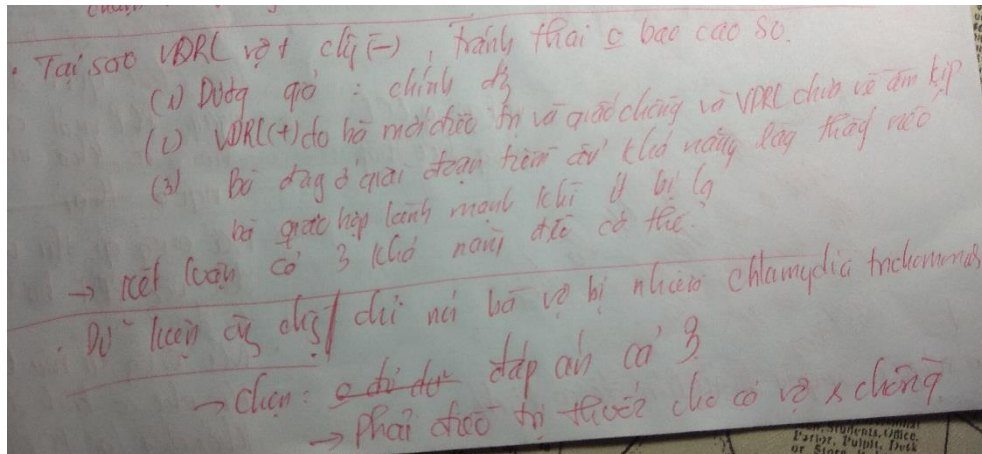 • Tại sao VDRL vợ + ck (-), tránh thai = bao cao su.
(1) Dương giả : chính đg
(2) VDRL(+) do bà mới điều trị và giấc chồng và VDRL chưa về âm kịp
(3) Bà đag ở giai đoạn tiềm ẩn khả năng lây thấp nếu
bà giao hợp lành mạnh khi ít bị lq
→ Kết luận có 3 khả năng đều có thể.
chỉ nói bà vợ bị nhiễm Chlamydia trichomonas
→ Chọn: đáp án cả 3
→ Phải điều trị thuốc cho cả vợ & chồng
Students, Office,
Parlor, Pulpit, Desk
or